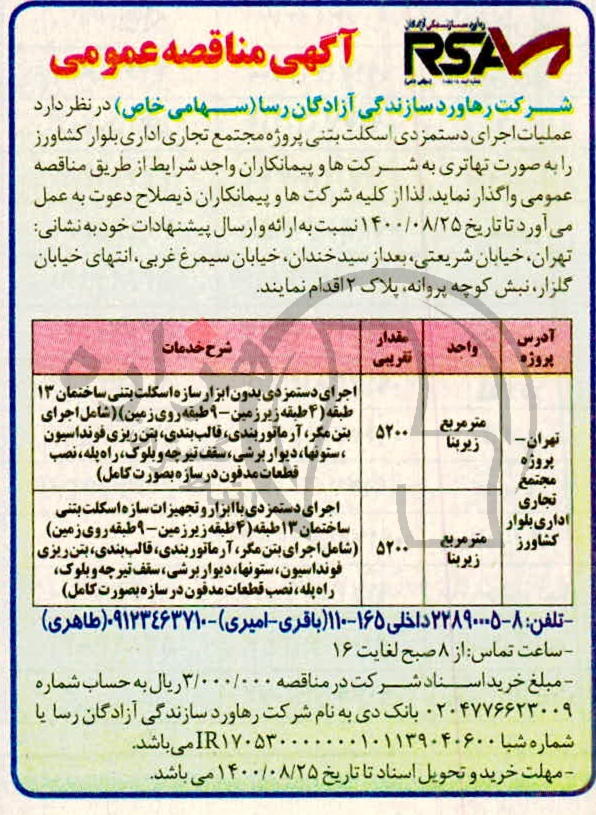 رهاورد سازندگی آزادگان
RSA
آگهی مناقصه عمومی
شرکت رهاورد سازندگی آزادگان رسا (سهامی خاص) در نظر دارد
عملیات اجرای دستمزدی اسکلت بتنی پروژه مجتمع تجاری اداری بلوار کشاورز
را به صورت تهاتری به شرکت ها و پیمانکاران واجد شرایط از طریق مناقصه
عمومی واگذار نماید. لذا از کلیه شرکت ها و پیمانکاران ذیصلاح دعوت به عمل
می آورد تا تاریخ ۱۴۰۰/۰۸/۲۵ نسبت به ارائه و ارسال پیشنهادات خود به نشانی:
تهران، خیابان شریعتی، بعد از سید خندان، خیابان سیمرغ غربی، انتهای خیابان
گلزار، نبش کوچه پروانه، پلاک ۲ اقدام نمایند.
آدرس پروژه
واحد
مقدار تقریبی
شرح خدمات
تهران -
پروژه
مجتمع
تجاری
اداری بلوار
کشاورز
مترمربع
زیربنا
۵۲۰۰
اجرای دستمزدی بدون ابزار سازه اسکلت بتنی ساختمان ۱۳
طبقه (۴ طبقه زیر زمین - ۹ طبقه روی زمین) (شامل اجرای
بتن مگر، آرماتوربندی، قالب بندی، بتن ریزی فونداسیون
، ستونها، دیوار برشی، سقف تیرچه و بلوک، راه پله، نصب
قطعات مدفون در سازه بصورت کامل)
مترمربع
زیربنا
۵۲۰۰
اجرای دستمزدی با ابزار و تجهیزات سازه اسکلت بتنی
ساختمان ۱۳ طبقه (۴ طبقه زیر زمین - ۹ طبقه روی زمین)
(شامل اجرای بتن مگر، آرماتوربندی، قالب بندی، بتن ریزی
فونداسیون، ستونها، دیوار برشی، سقف تیرچه و بلوک،
راه پله، نصب قطعات مدفون در سازه بصورت کامل)
-تلفن: ۸-۲۲۸۹۰۰۰۵ داخلی ۱۶۵-۱۱۰ (باقری-امیری) -۰۹۱۲۳۴۶۳۷۱۰ (طاهری)
- ساعت تماس: از ۸ صبح لغایت ۱۶
- مبلغ خرید اسناد شرکت در مناقصه ۳/۰۰۰/۰۰۰ ریال به حساب شماره
۰۲۰۴۷۷۶۶۲۳۰۰۹ بانک دی به نام شرکت رهاورد سازندگی آزادگان رسا یا
شماره شبا IR۱۷۰۵۳۰۰۰۰۰۰۰۰۱۰۱۱۳۹۰۴۰۶۰۰ می باشد.
- مهلت خرید و تحویل اسناد تا تاریخ ۱۴۰۰/۰۸/۲۵ می باشد.